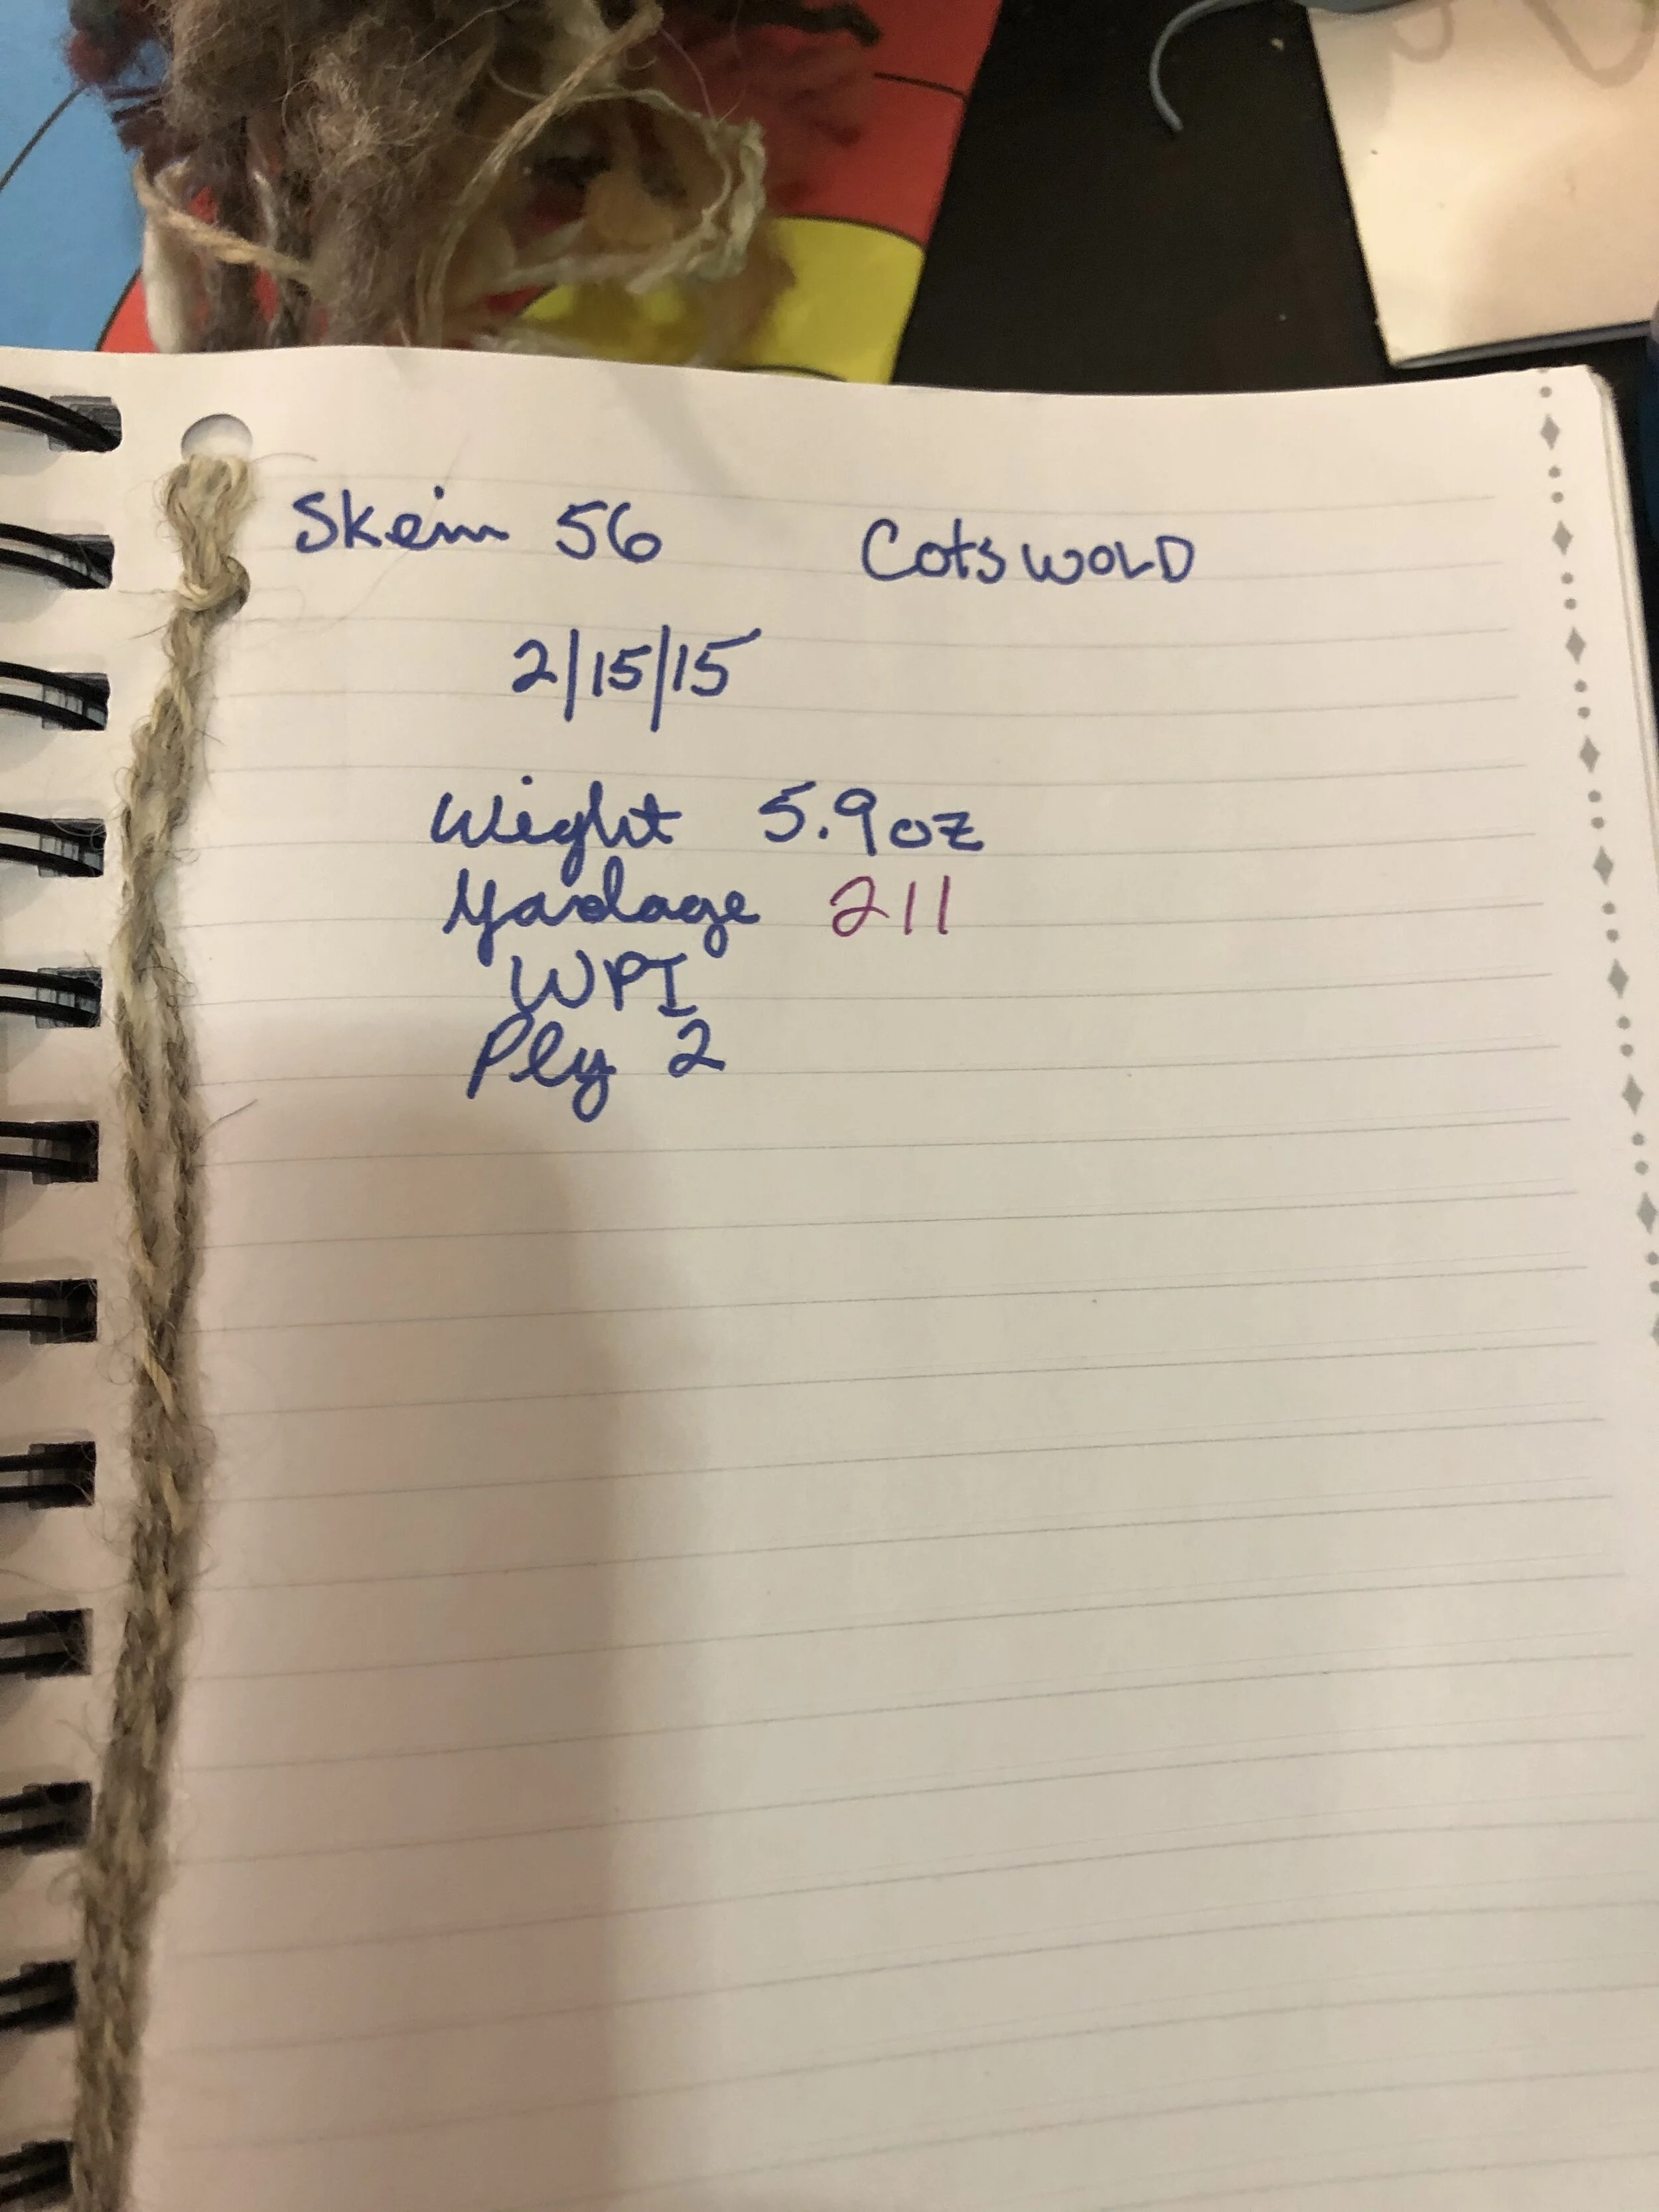 Skein 56 Cotswold
2/15/15
Weight 5.9oz
Yardage 211
WPI
Ply 2